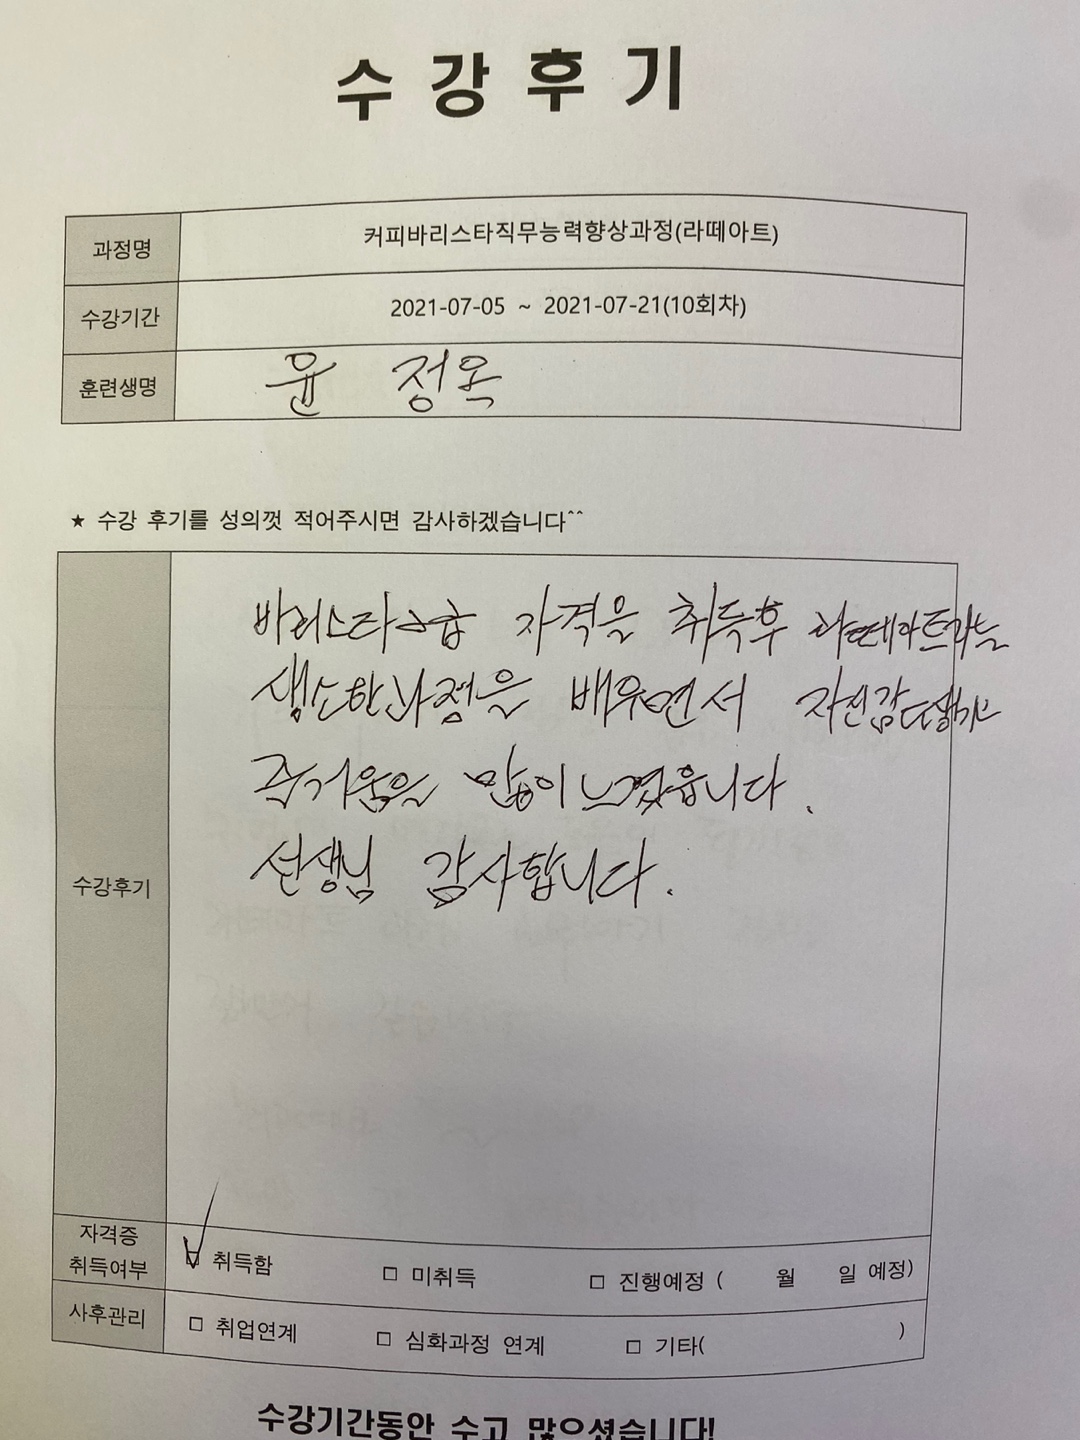 수강후기
과정명 커피바리스타직무능력향상과정(라떼아트)
수강기간 2021-07-05 ~ 2021-07-21(10회차)
훈련생명 윤 정옥
★ 수강 후기를 성의껏 적어주시면 감사하겠습니다^^
바리스타2급 자격을 취득후 라떼아트라는
생소한과정을 배우면서 자신감도생기고
즐거움을 많이 느꼈읍니다.
선생님 감사합니다.
수강후기
자격증
취득여부 □ 취득함 □ 미취득 □ 진행예정 ( 월 일 예정)
사후관리 □ 취업연계 □ 심화과정 연계 □ 기타( )
수강기간동안 수고 많으셨습니다!